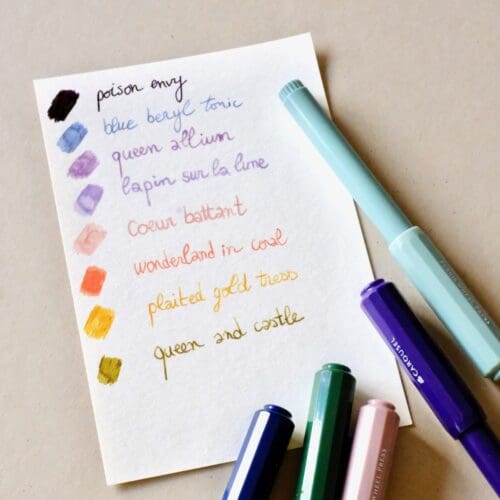 poison envy
blue beryl tonic
queen allium
lapin sur la lune
Coeur battant
wonderland in coral
plaited gold tress
queen and castle
CAROUSEL
PRESS